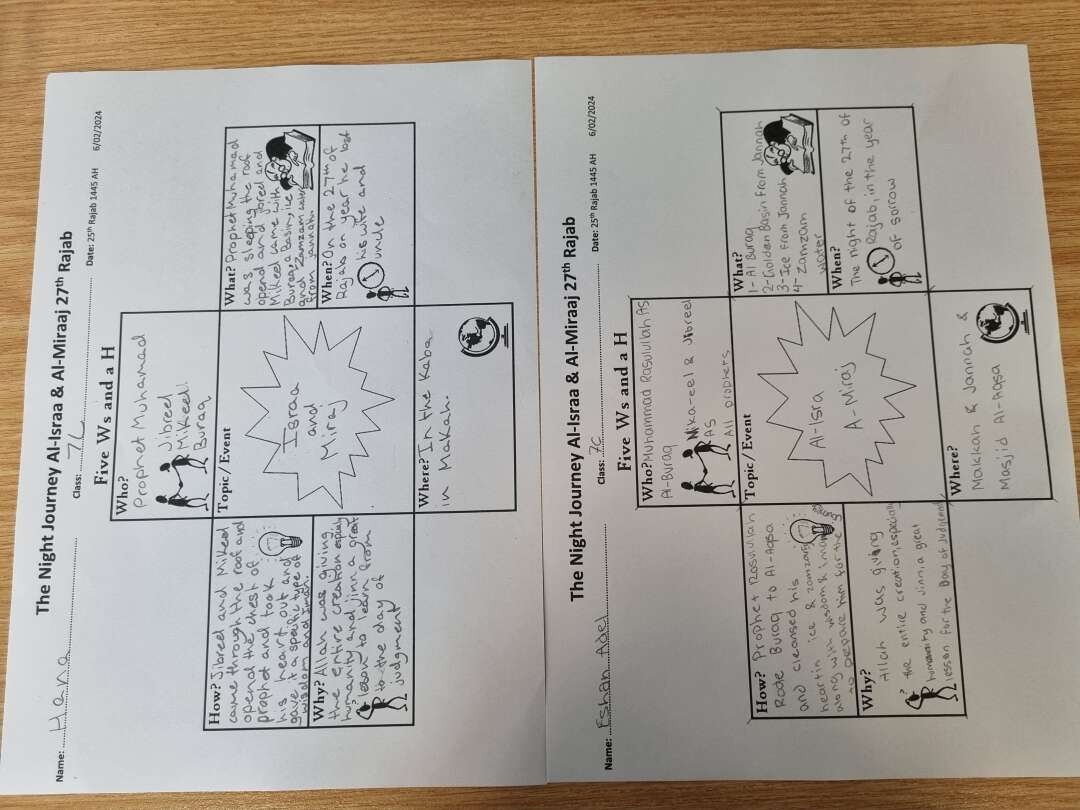 The Night Journey Al-Israa & Al-Miraaj 27th Rajab
Name: Hana Class: 7C Date: 25th Rajab 1445 AH 6/02/2024
Five Ws and a H
Who?
Prophet Muhamad
Jibreel
Mikeel
Buraq
How? Jibreel and Mikeel
came through the roof and
opend the chest of
prophat and took
his heart out and
gave it a specific type of
wisdom and iman.
Topic / Event
Israa
and
Miraj
What? Prophet Muhamad
was sleeping the roof
opend and jbreel and
Mikeel came with
Buraq, a Basin, ice
and Zamzam water
from jannah.
Why? Allah was giving
the entire creation especialy
humanity and jinn a great
lesson to learn from
to the day of
judgment
When? On the 27th of
Rajab on year he lost
his wife and
uncle
Where? In the Kaba
in Makah.
The Night Journey Al-Israa & Al-Miraaj 27th Rajab
Name: Eshan Adel Class: 7C Date: 25th Rajab 1445 AH 6/02/2024
Five Ws and a H
Who? Muhammad Rasulullah AS
Al-Buraq
Mika-eel & Jibreel
AS
All prophets
How? Prophet Rasulullah
Rode Buraq to Al-Aqsa
and cleansed his
heart in ice & zamzam
along with wisdom & iman
to prepare him for the
Journey
Topic / Event
Al-Isra
A-Miraj
What?
1- Al Buraq
2- Golden Basin From Jannah
3- Ice From Jannah
4- Zamzam
water
Why?
Allah was giving
the entire creation, especially
humanity and Jinn, a great
lesson for the Day of Judgement
When?
The night of the 27th of
Rajab, in the year
of sorrow
Where?
Makkah & Jannah &
Masjid Al-Aqsa